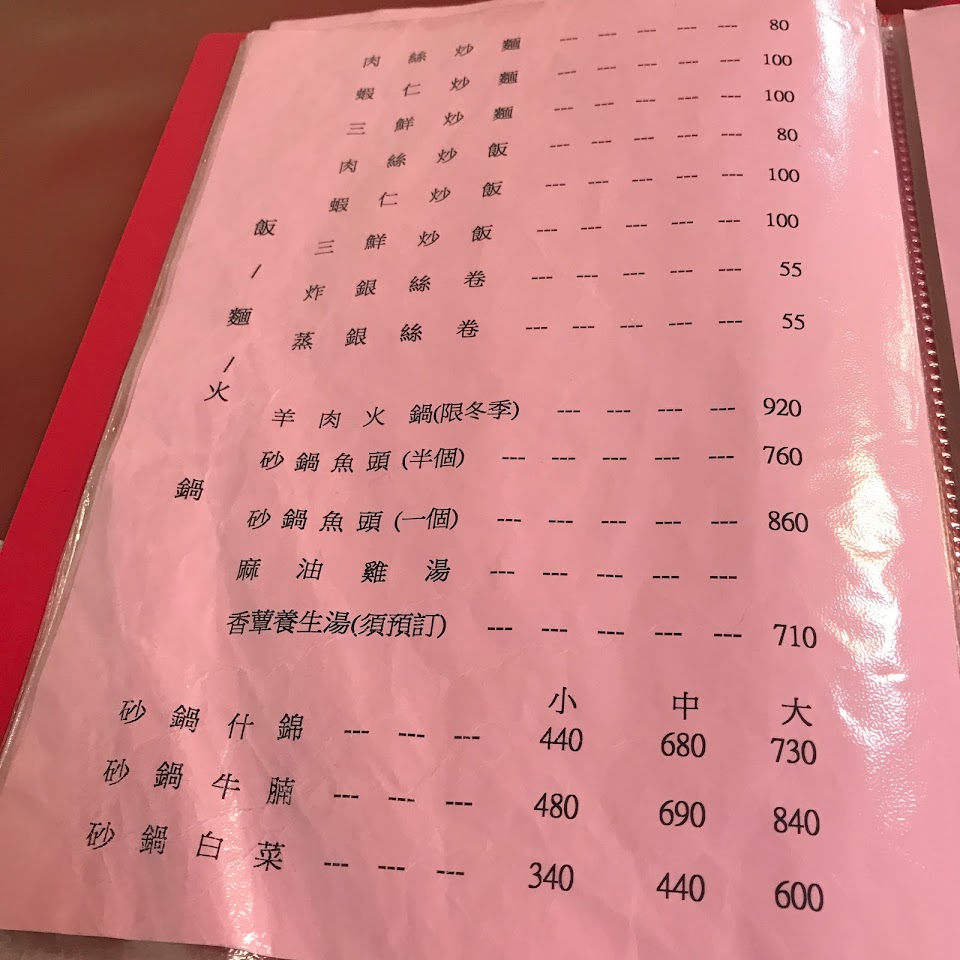 肉絲炒麵 --- --- --- --- --- 80
蝦仁炒麵 --- --- --- --- --- 100
三鮮炒麵 --- --- --- --- --- 100
肉絲炒飯 --- --- --- --- --- 80
蝦仁炒飯 --- --- --- --- --- 100
三鮮炒飯 --- --- --- --- --- 100
炸銀絲卷 --- --- --- --- --- 55
蒸銀絲卷 --- --- --- --- --- 55
飯/麵/火鍋
羊肉火鍋(限冬季) --- --- --- --- 920
砂鍋魚頭(半個) --- --- --- --- --- 760
砂鍋魚頭(一個) --- --- --- --- --- 860
麻油雞湯 --- --- --- --- ---
香蕈養生湯(須預訂) --- --- --- --- --- 710
小 中 大
砂鍋什錦 --- --- --- 440 680 730
砂鍋牛腩 --- --- --- 480 690 840
砂鍋白菜 --- --- --- 340 440 600